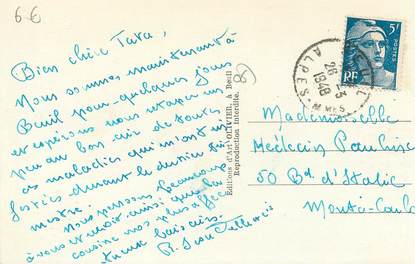 6€
Bien chère Tata,
Nous sommes maintenant à
Beuil pour quelques jours
et espérons nous retaper un
peu au bon air de toutes
ces maladies qui m'ont in-
festées durant le dernier tri-
mestre.
Nous pensons beaucoup
à vous et
cousine nos plus affec-
tueux baisers.
Editions d'Art OLIVIER, à Beuil
Reproduction Interdite.
ALPES
26-3
1948
5F
POSTES
RF
Mademoiselle
Médecin Pauline
50 Bd d'Italie
Monte-Carlo